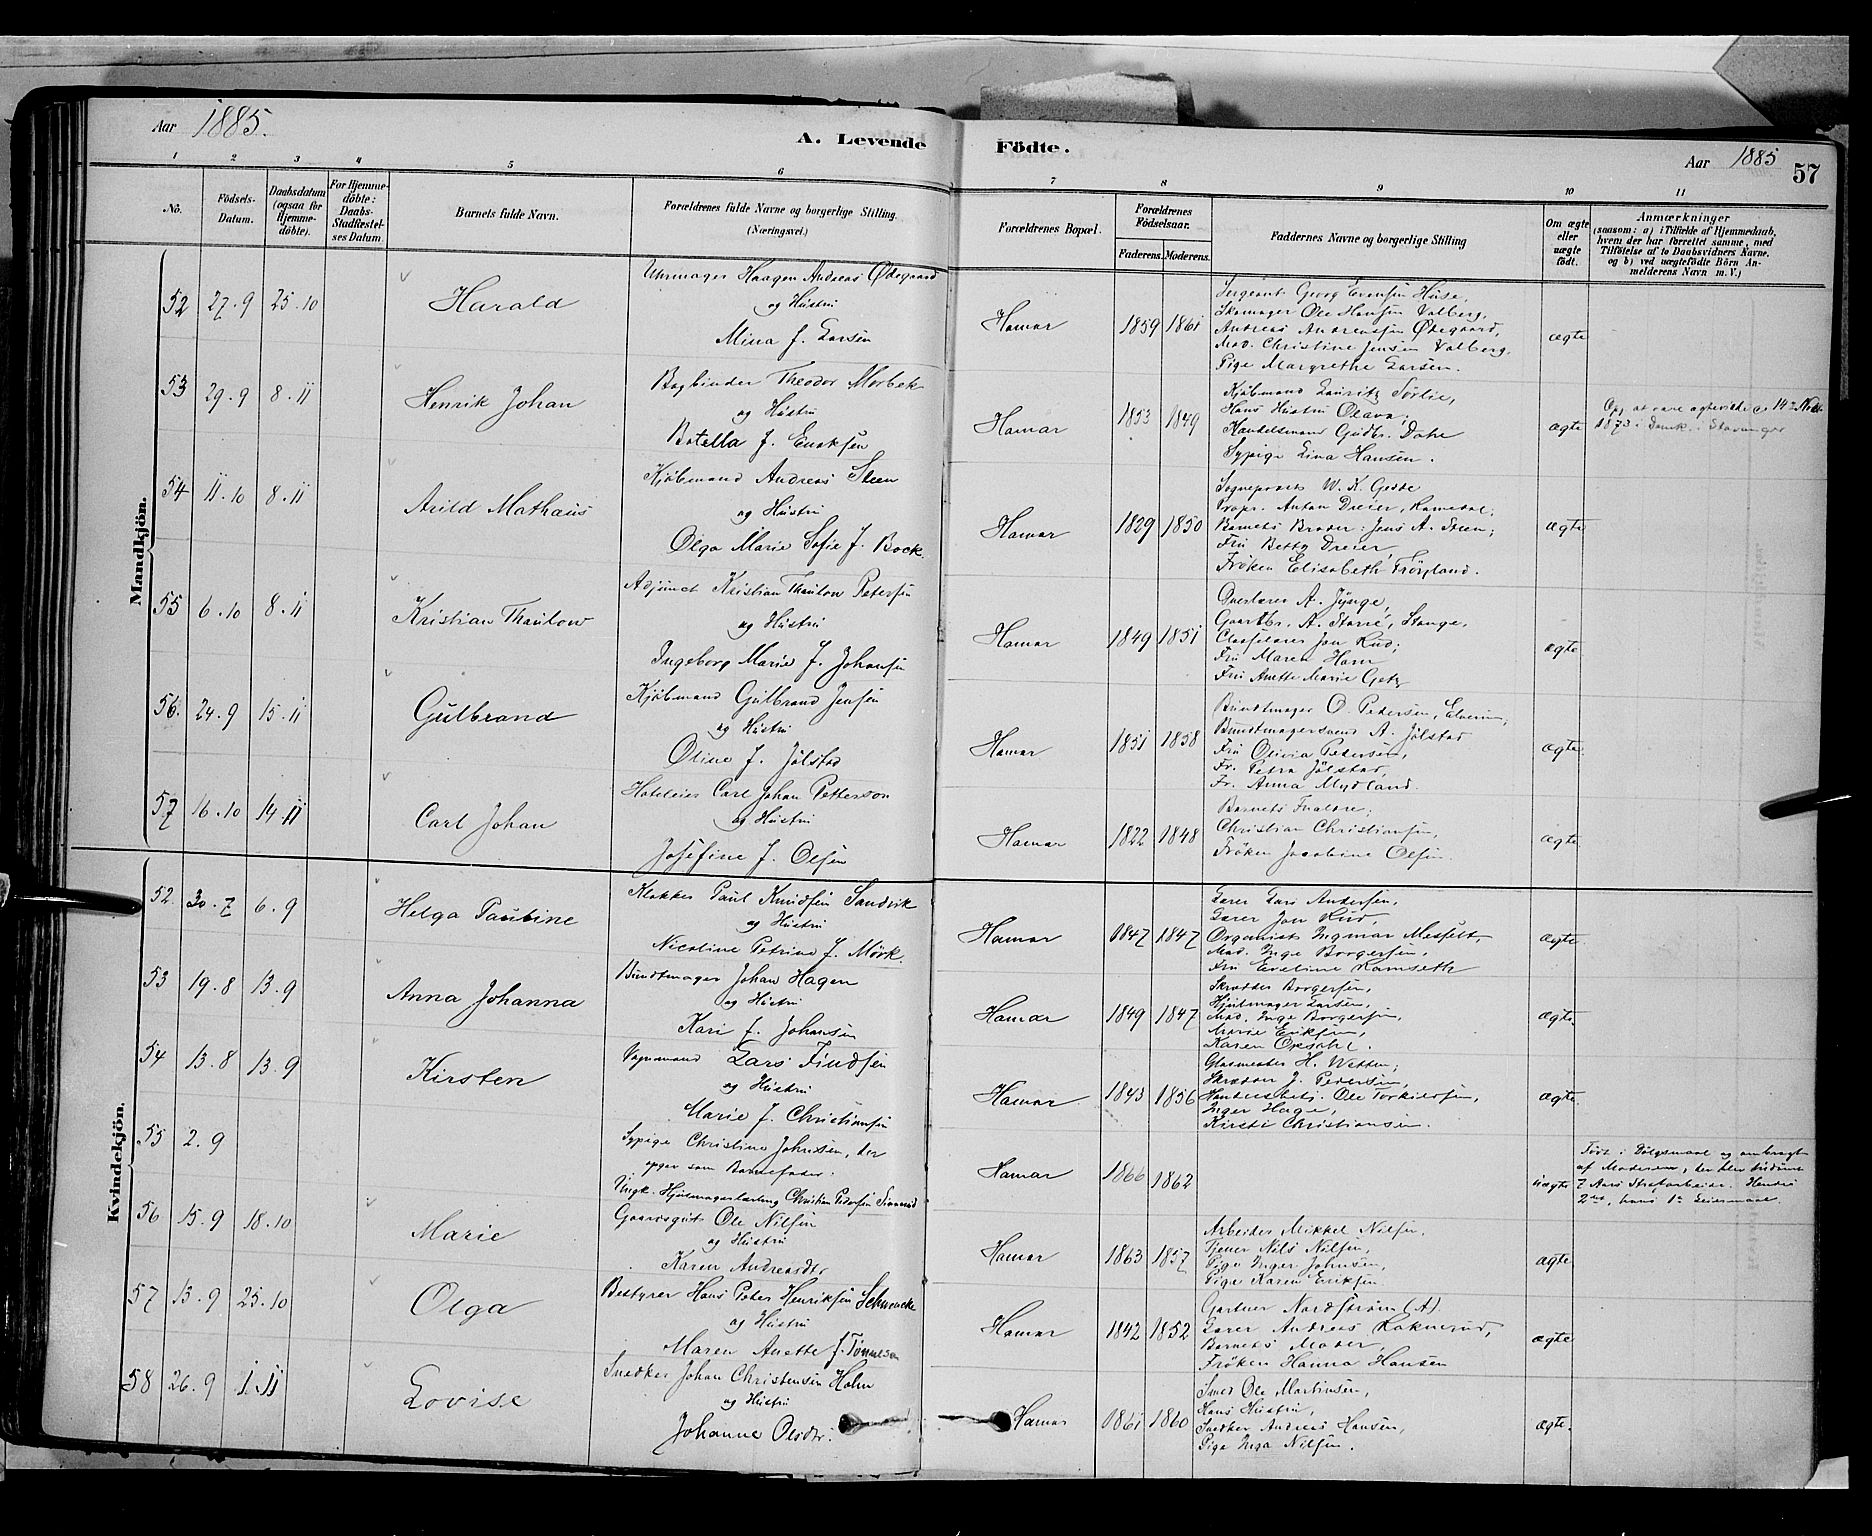 Aar 1885.
A. Levende Födte.
Aar 1885
57
1 2 3 4 5 6 7 8 9 10 11
No.
Födsels-Datum.
Daabsdatum (ogsaa for Hjemme-döbte).
For Hjemme-döbte: Daabs-Stadfæstel-ses Datum.
Barnets fulde Navn.
Forældrenes fulde Navne og borgerlige Stilling. (Næringsvei.)
Forældrenes Bopæl.
Forældrenes Födselsaar.
Faderens. Moderens.
Faddernes Navne og borgerlige Stilling
Om ægte eller uægte födt.
Anmærkninger
(saasom: a) i Tilfælde af Hjemmedaab,
hvem der har forrettet samme, med
Tilföielse af to Daabsvidners Navne,
og b) ved uægtefödte Börn An-
melderens Navn m. V.)
Mandkjön.
52 27.9 25.10 Harald
Uhrmager Haagen Andreas Ødegaard
og Hustru
Mina f. Larsen
Hamar 1859 1861
Sergeant Georg Evensen Huse,
Skomager Ole Hansen Valberg,
Andreas Andreassen Ødegaard,
Mad. Christine Jensen Valberg,
Pige Margrethe Larsen.
ægte
53 29.9 8.11 Henrik Johan
Bogbinder Theodor Morbek
og Hustru
Botella f. Enoksen
Hamar 1853 1849
Kjøbmand Lauritz Sørlie,
Hans Hustru Olava,
Handelsmand Gudbr. Dahl
Sypige Lina Hansen.
ægte
Opg. at være ægteviede 14de Novbr
1873 i Domk. i Stavanger
54 11.10 8.11 Arild Mathæus
Kjøbmand Andreas Steen
og Hustru
Olga Marie Sofie f. Bock.
Hamar 1829 1850
Sogneprest W. K. Gedde
Propr. Anton Dreier, Romedal;
Barnets Broder: Jens A. Steen;
Fru Betty Dreier,
Frøken Elisabeth Frøyland.
ægte
55 6.10 8.11 Kristian Thaulow
Adjunct Kristian Thaulow Petersen
og Hustru
Ingeborg Marie f. Johansen
Hamar 1849 1851
Overlærer A. Jynge,
Gaardbr. A. Starrè, Stange,
Classelærer Jon Rud;
Fru Maren Horn
Fru Anette Marie Getz
ægte
56. 24.9 15.11 Gulbrand
Kjøbmand Gulbrand Jensen
og Hustru
Oline f. Jølstad
Hamar 1851 1858
Bundtmager O. Pedersen, Elverum;
Bundtmagersvend A. Jølstad
Fru Olivia Pedersen,
Fr. Petra Jølstad,
Fr. Anna Mydland.
ægte.
57 16.10 14.11 Carl Johan
Hoteleier Carl Johan Petterson
og Hustru
Josefine f. Olsen
Hamar 1822 1848
Barnets Forældre;
Christian Christiansen,
Frøken Jacobine Olsen.
ægte.
Kvindekjön.
52. 30.7 6.9 Helga Pauline
Klokker Paul Knudsen Sandvik
og Hustru
Nicoline Petrine f. Mørk.
Hamar 1847 1847
Lærer Lars Andersen,
Lærer Jon Rud,
Organist Ingmar Mesfelt,
Mad. Inge Borgersen,
Fru Eveline Ramseth
ægte.
53 19.8 13.9 Anna Johanna
Bundtmager Johan Hagen
og Hustru
Kari f. Johansen
Hamar 1849 1847
Skrædder Borgersen,
Hjulmager Larsen,
Mad. Inge Borgersen,
Marie Eriksen,
Karen
ægte.
54 13.8 13.9 Kirsten
Vognmand Lars Findsen
og Hustru
Marie f. Christiansen
Hamar 1843 1856
Glasmester H. Wetten;
Skrædder J. Pedersen,
Handelsbetj. Ole Torkildsen,
Inger Hage,
Kirsti Christiansen.
ægte.
55 2.9
Sypige Christine Johnsen, der
opgav som Barnefader:
Ungk. Hjulmagerlærling Christian Pedersen
Hamar 1866 1862
uægte
Født i Dølgsmaal og ombragt
af Moderen, der blev
7 Aars Strafarbeide. Hendes
2det, hans 1ste Leiermaal.
56 15.9 18.10 Marie
Gaardsgut Ole Nilsen
og Hustru
Karen Andreasdtr
Hamar 1863 1857
Arbeider Mikkel Nilsen,
Tjener Nils Nilsen,
Pige Inger Johnsen,
Pige Karen Eriksen
ægte.
57 13.9 25.10 Olga
Bestyrer Hans Peter Henriksen Schmncke
og Hustru
Maren Anette f. Tønnesen
Hamar 1842 1852
Gartner Nordstrøm (A).
Lærer Andreas Roknerud,
Barnets Moder,
Frøken Hanna Hansen
ægte
58 26.9 1.11 Lovise
Snedker Johan Christensen Holm
og Hustru
Johanne Olsdtr.
Hamar 1861 1860
Smed Ole Martinsen,
Hans Hustru,
Snedker Andreas Hansen,
Pige Inga Nilsen.
ægte.